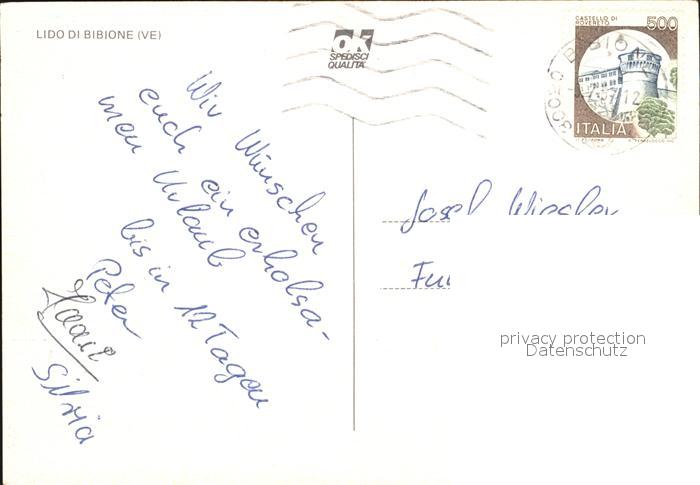 LIDO DI BIBIONE (VE)
ok
SPEDISCI
QUALITÀ
CASTELLO DI
ROVERETO
500
ITALIA
30020 BIBIO
12
Wir Wünschen
euch ein erholsa-
men Urlaub
bis in 12 Tagen
Peter
Silvia
Josef
privacy protection
Datenschutz